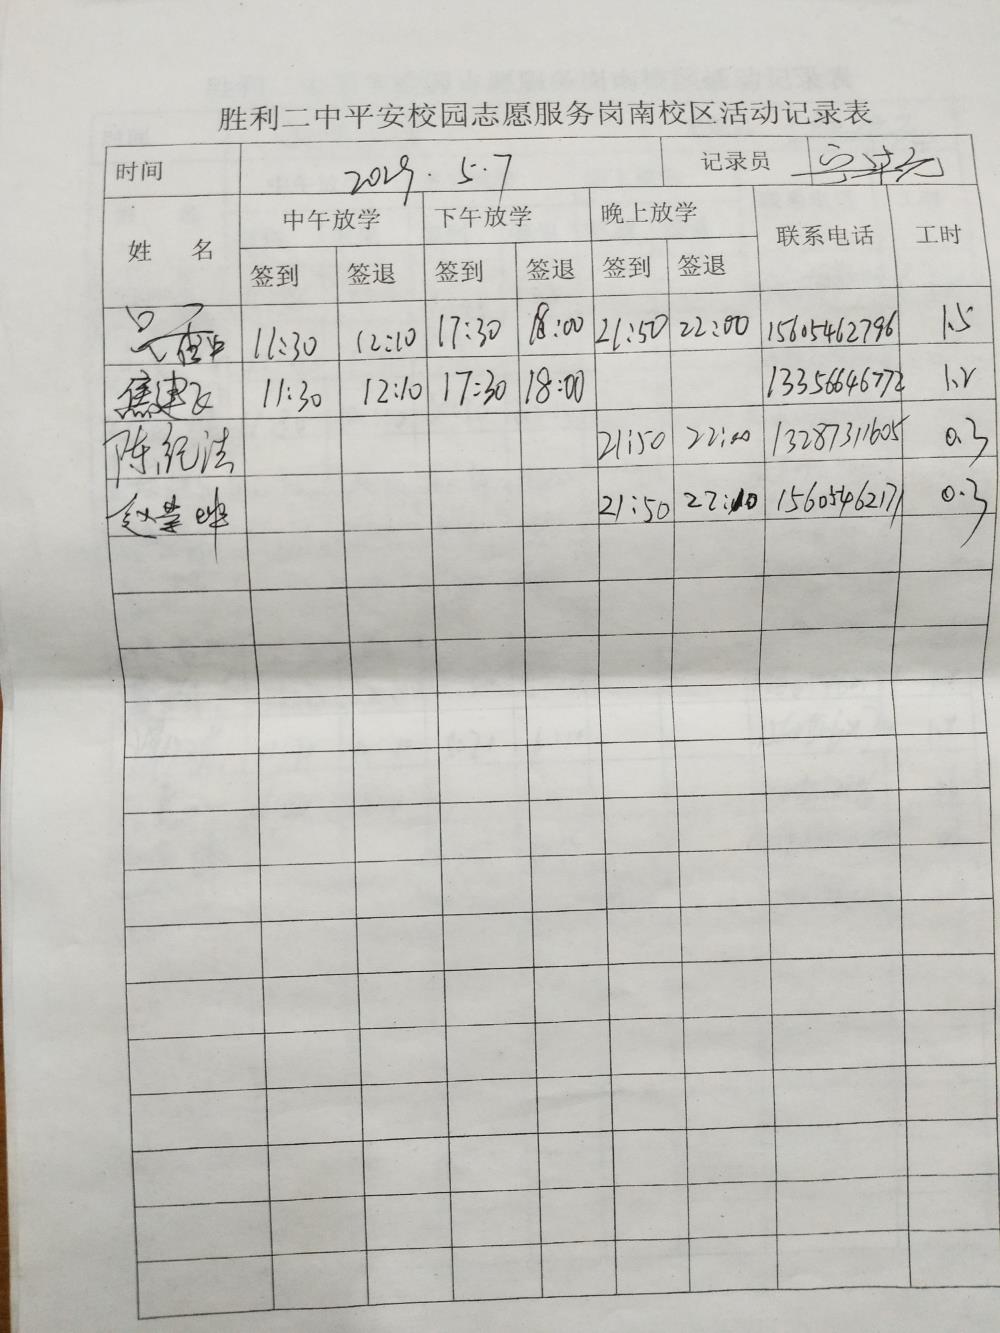 胜利二中平安校园志愿服务岗南校区活动记录表
时间 2029.5.7 记录员
姓 名 中午放学 下午放学 晚上放学 联系电话 工时
签到 签退 签到 签退 签到 签退
11:30 12:10 17:30 18:00 21:50 22:00 15605462796 1.5
焦建飞 11:30 12:10 17:30 18:00 13356646772 1.2
陈纪法 21:50 22:00 13287311605 0.3
赵荣晔 21:50 22:10 15605462171 0.3